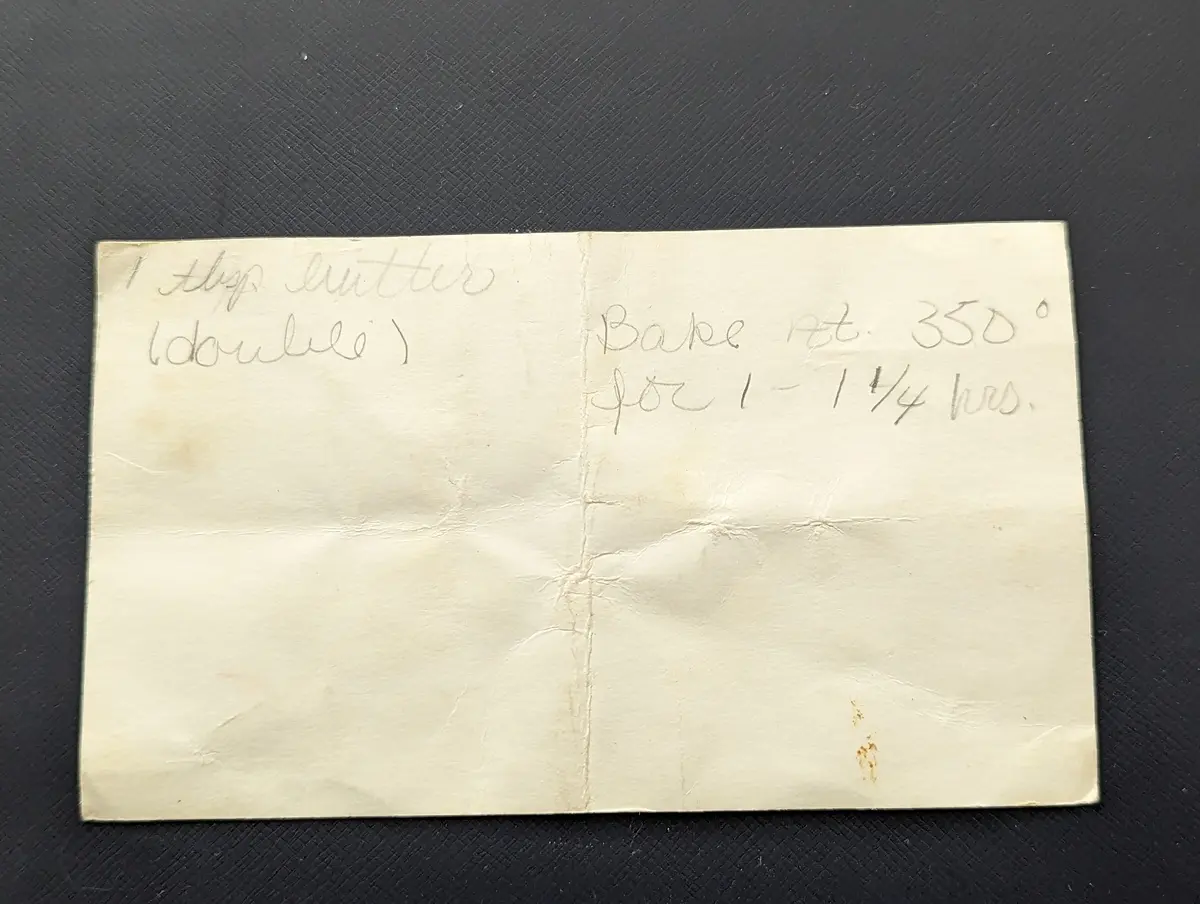 1 tbsp butter
(double)
Bake at. 350°
for 1 - 1 1/4 hrs.